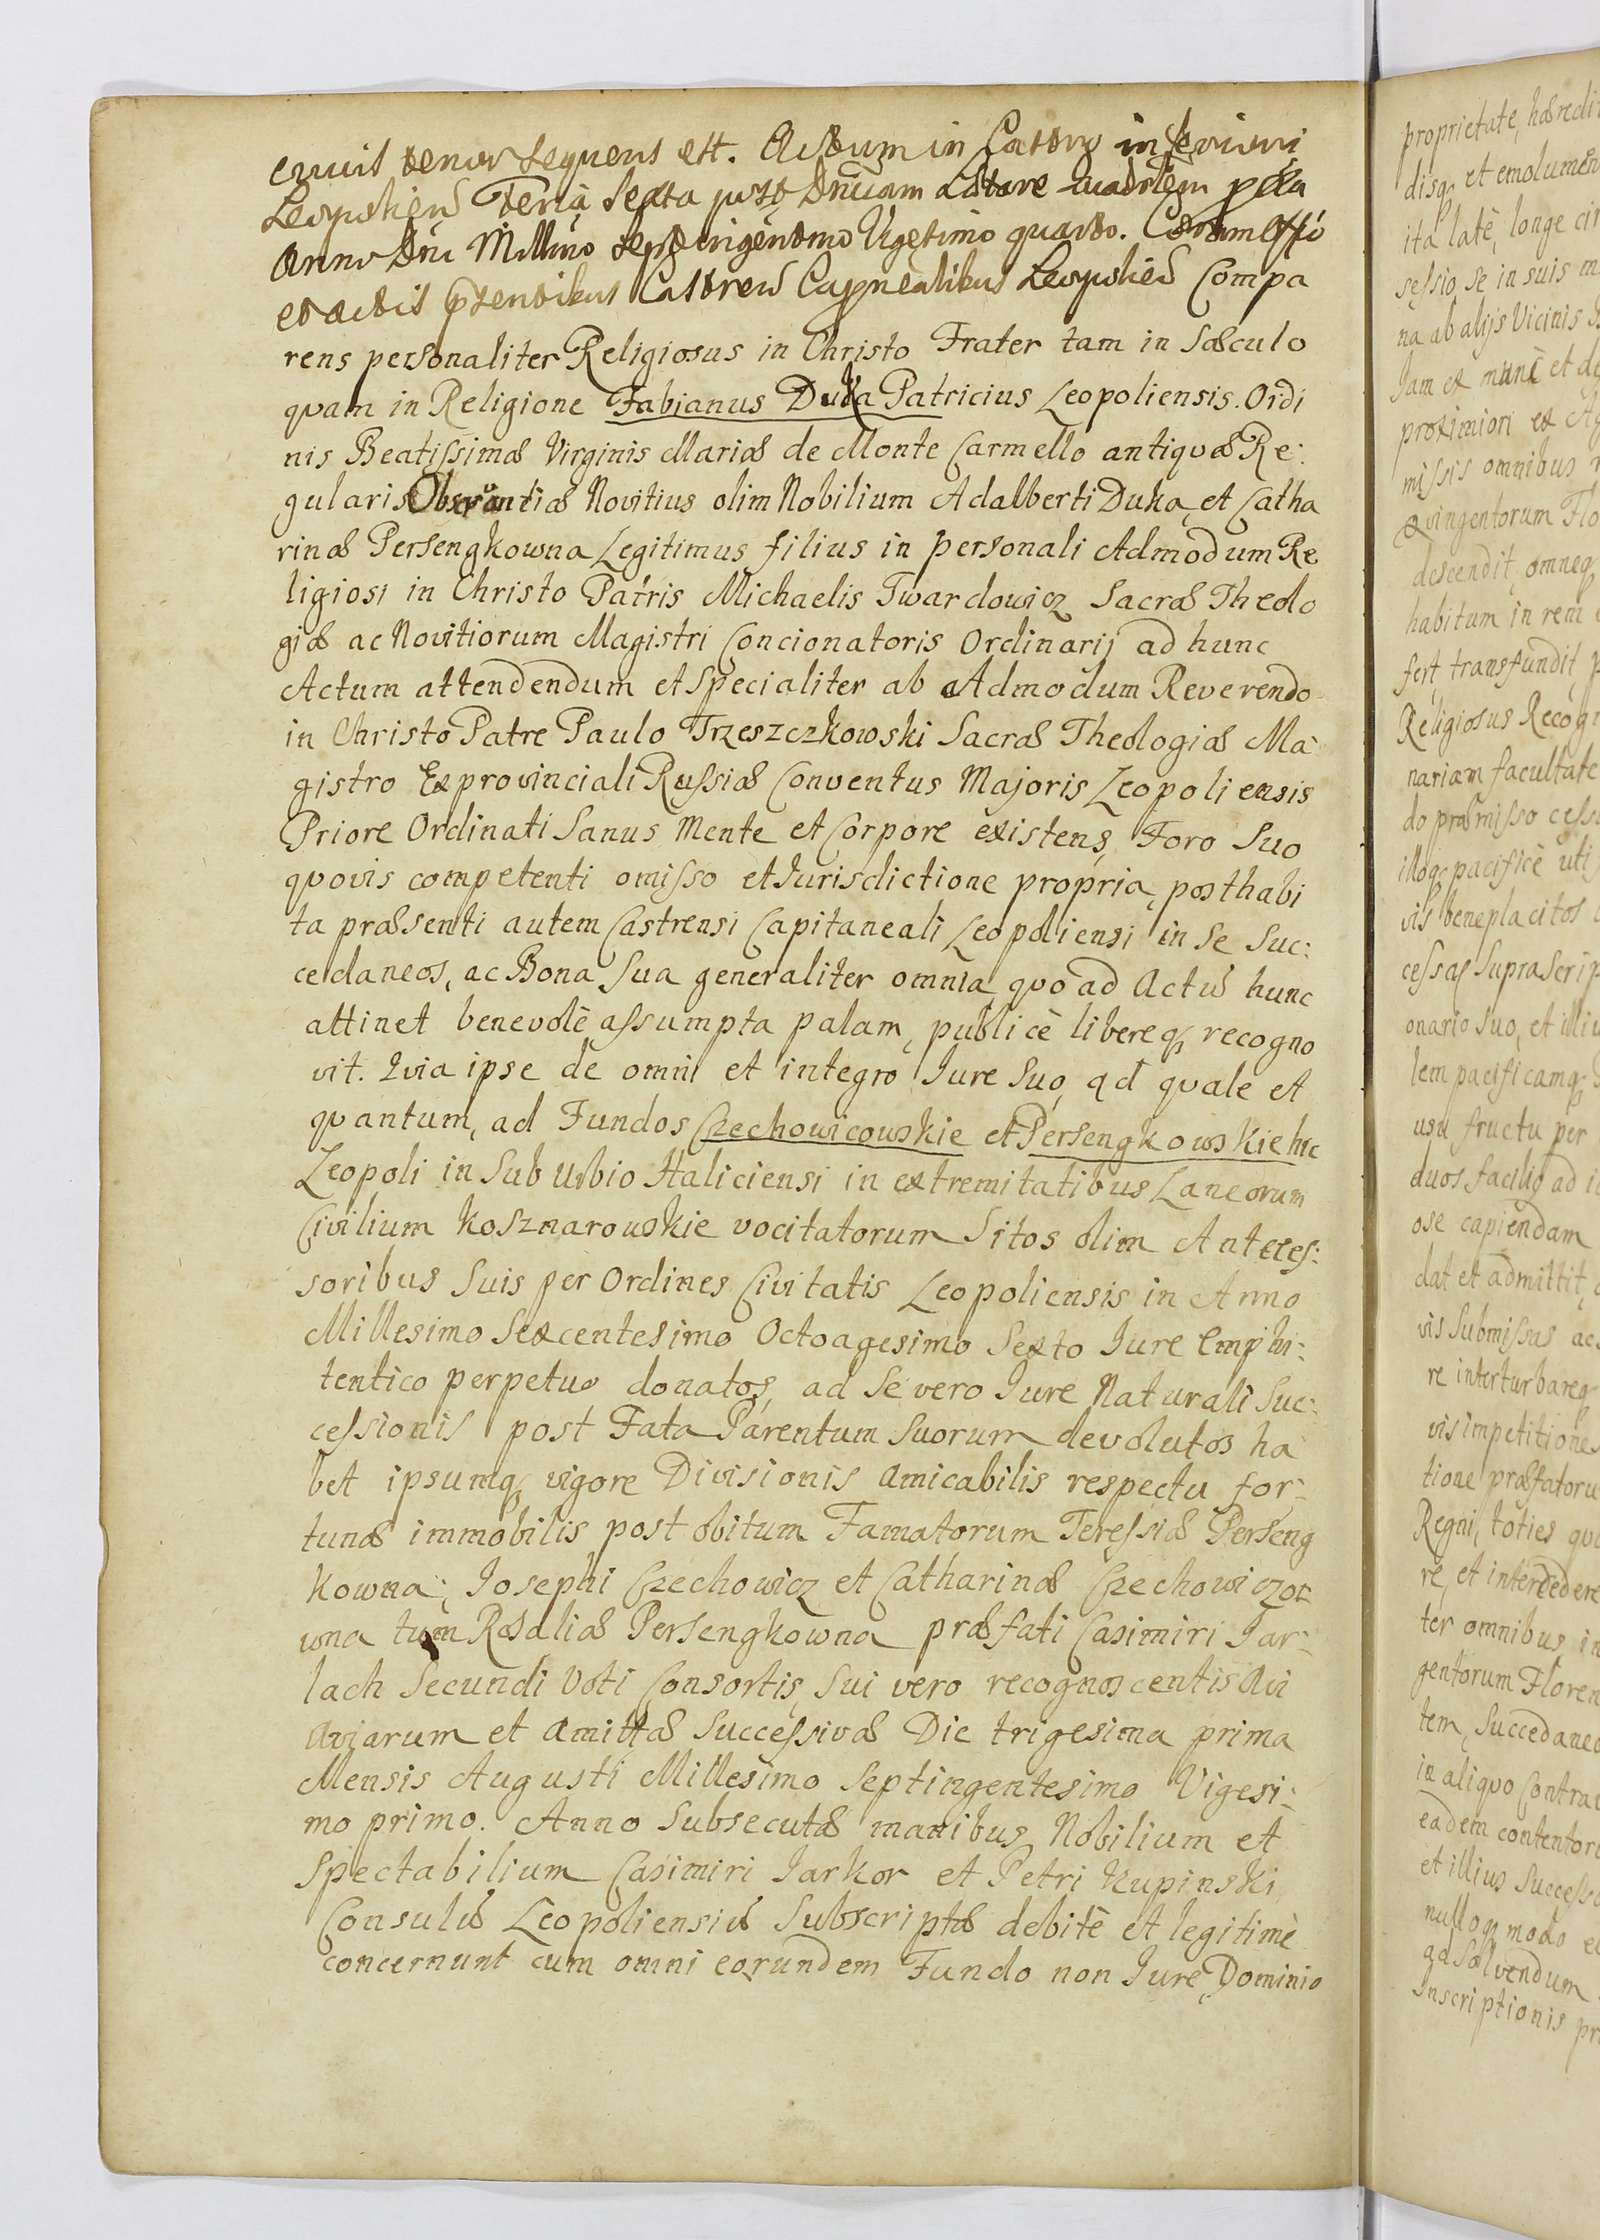 tenor sequens est. Actum in Castro inferiori
Leopolien Feria Sexta post Dnicam Laetare Quadrlem pxa
Anno Dni Millmo Septuingentmo Vigesimo quarto. Coram Offo
et Actis pntibus Castren Capnealibus Leopolien Compa
rens personaliter Religiosus in Christo Frater tam in Sæculo
quam in Religione Fabianus Duka Patricius Leopoliensis. Ordi
nis Beatissimæ Virginis Mariæ de Monte Carmello antiquæ Re:
gularis Observantiæ Novitius olim Nobilium Adalberti Duka, et Catha
rinæ Persengkowna Legitimus filius in personali Admodum Re
ligiosi in Christo Patris Michaelis Twardowicz Sacræ Theolo
giæ ac Novitiorum Magistri Concionatoris Ordinarij ad hunc
Actum attendendum et Specialiter ab Admodum Reverendo
in Christo Patre Paulo Trzeszczkowski Sacræ Theologiæ Ma
gistro Exprovinciali Russiæ Conventus Majoris Leopoliensis
Priore Ordinati Sanus Mente et Corpore existens, Foro Suo
quovis competenti omisso et Jurisdictione propria, posthabi
ta præsenti autem Castrensi Capitaneali Leopoliensi in Se Suc:
cedaneos, ac Bona Sua generaliter omnia, quo ad Actu hunc
attinet benevolè assumpta palam, publicè libereq, recogno
vit. Quia ipse de omni et integro Jure Suo, qd quale et
quantum, ad Fundos Czechowicowskie et Persengkowskie hic
Leopoli in Sub Urbio Haliciensi in extremitatibus Laneorum
Civilium Kosznarowskie vocitatorum Sitos olim Anteces:
soribus Suis per Ordines Civitatis Leopoliensis in Anno
Millesimo Sexcentesimo Octoagesimo Sexto Jure Emphi:
tentico perpetuo donatos, ad Se vero Jure Naturali Suc:
cessionis post Fata Parentum Suorum devolutos ha
bet ipsumq, vigore Divisionis amicabilis respectu for:
tunæ immobilis post obitum Famatorum Teressiæ Perseng
kowna, Josephi Czechowicz et Catharinæ Czechowiczow
wna tum Rosaliæ Persengkowna præfati Casimiri Jar:
lach Secundi Voti Consortis, Sui vero recognoscentis Avi
Aviarum et Amittæ Successivæ Die trigesima prima
Mensis Augusti Millesimo Septingentesimo Vigesi:
mo primo. Anno Subsecutæ manibus Nobilium et
Spectabilium Casimiri Jarkor et Petri Kupinski
Consulu Leopoliensiu Subscriptæ debitè et legitimè
concernunt cum omni eorundem Fundo non Jure, Dominio
proprietate, hæredi
disq, et emolumen
ita latè, longe cir
sessio se in suis m
na ab alijs Vicinis
Jam ex nunc et de
proximiori ex
missis omnibus
Quingentorum Flo
descendit, omneq,
habitum in rem
fert, transfundit, p
Religiosus Recogn
nariam facultate
do præmisso cess
illoq, pacificè uti
vis beneplacitos
cessas supra scrip
onario Suo, et illiu
lem pacificamq,
usu fructu per
duos faciliq ad i
ose capiendam
dat et admittit,
vis Submissus ac
re interturbareq,
vis impetitiones
tione præfatoru
Regni, toties quo
re, et intercedere
ter omnibus in
gentorum Floren
tem, Succedaneo
in aliquo Contra
eadem contentor
et illius Successo
nulloq, modo e
ad Solvendum
Inscriptionis pr